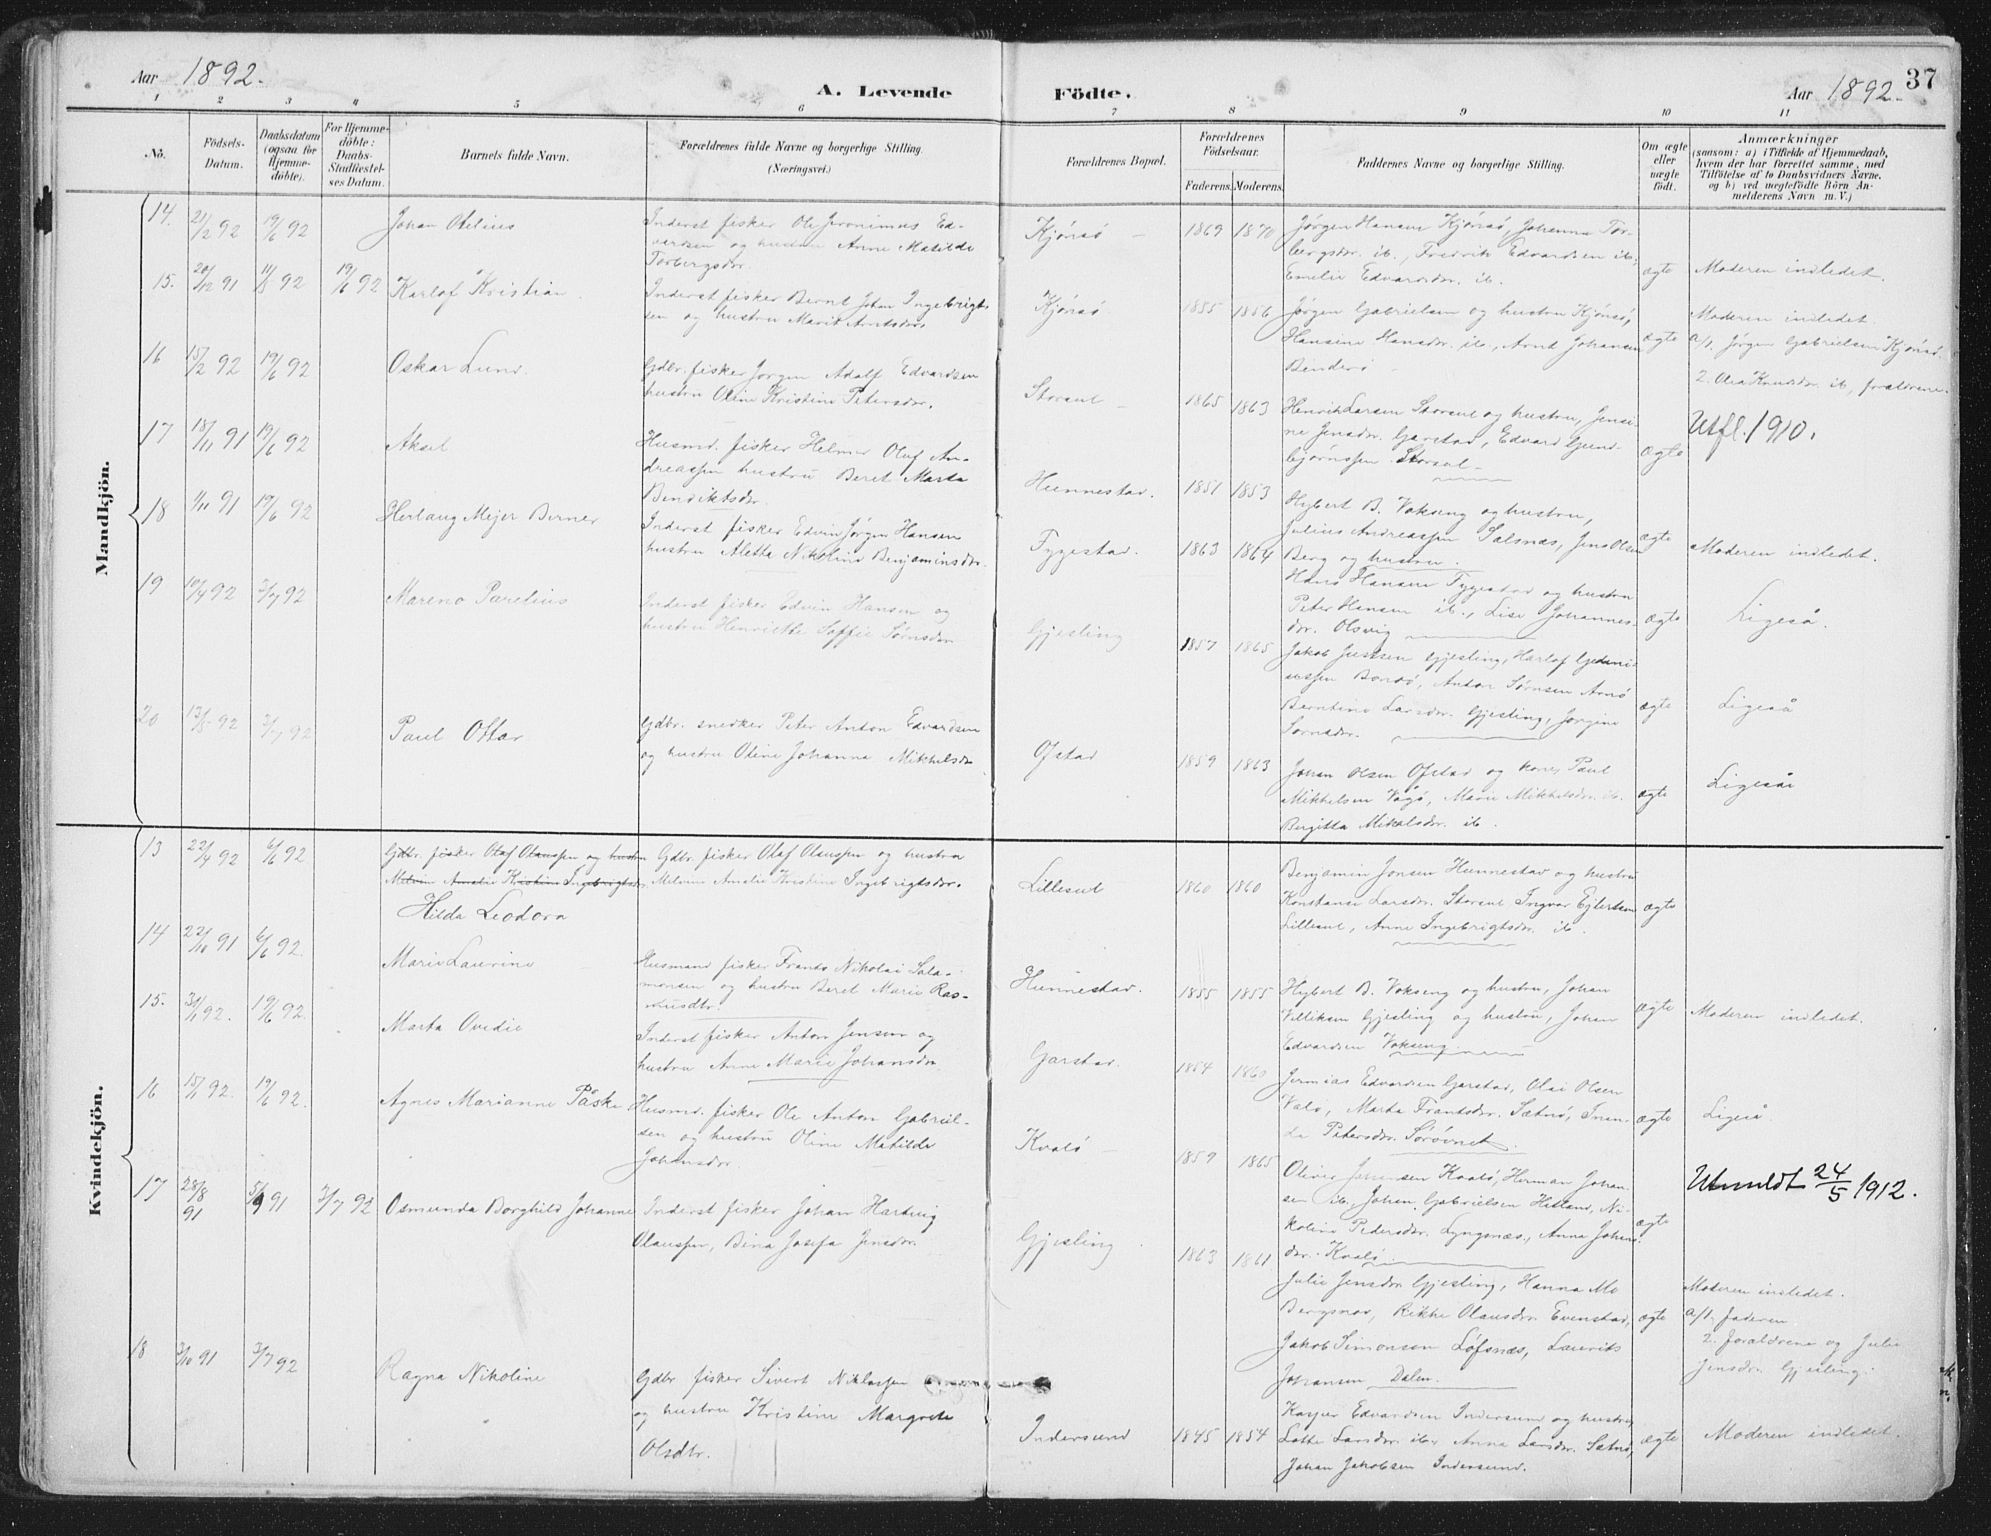 Aar 1892.
A. Levende Födte.
Aar 1892.
37
1 2 3 4 5 6 7 8 9 10 11
No.
Födsels-Datum.
Daabsdatum (ogsaa for Hjemme-döbte).
For Hjemme-döbte: Daabs-Stadfæstel-ses Datum.
Barnets fulde Navn.
Forældrenes fulde Navne og borgerlige Stilling. (Næringsvei.)
Forældrenes Bopæl.
Forældrenes Födselsaar.
Faderens. Moderens.
Faddernes Navne og borgerlige Stilling.
Om ægte eller uægte födt.
Anmærkninger
(saasom: a) i Tilfælde af Hjemmedaab, hvem der har forrettet samme, med Tilföielse af to Daabsvidners Navne, og b) ved uægtefödte Börn An-melderens Navn m.V.)
Mandkjön.
14. 21/2 92 19/6 92 Johan Otelius
Inderst fisker Ole Jeronimus Ed-
vardsen og hustru Anne Matilde
Torbergsdr.
Kjönsö 1869 1870
Jørgen Hansen Kjönsö, Johanna Tor-
bergsdr. ib., Fredrik Edvardsen ib.,
Emelie Edvardsdr. ib.
ægte Moderen indledet.
15. 20/12 91 92 19/6 92 Karlof Kristian
Inderst fisker Bernt Johan Ingebrigt-
sen og hustru Marit Arntsdr.
Kjönsö 1855 1856
Jørgen Gabrielsen og hustru Kjönsö,
Hansine Hansdr. ib., Arnt Johansen
Bindersö
ægte Moderen indledet.
a/1. Jørgen Gabrielsen Kjönsö.
2. Olea Knudsdr. ib, forældrene.
16 15/2 92 19/6 92 Oskar Lund
Gdbr. fisker Jørgen Adolf Edvardsen
hustru Oline Kristine Petersdr.
Storsul 1865 1863
Henrik Larsen Storsul og hustru, Jensi-
ne Jensdr. Garstad, Edvard Gund-
bjørnssen Storsul
ægte Utfl. 1910.
17 18/11 91 19/6 92 Aksel
Husmd. fisker Helmer Oluf An-
dreassen hustru Beret Marta
Bendriktsdr.
Hunnestad. 1851 1853
Hybert B. Vokseng og hustru,
Julius Andreassen Salsnæs, Jens Olsen
Berg og hustru.
ægte Moderen indledet.
18 1/11 91 19/6 92 Herlaug Mejer Berner
Inderst fisker Edvin Jørgen Hansen
hustru Aletta Nikoline Benjaminsdr.
Tyggestad. 1863 1864
Hans Hansen Tyggestad og hustru
Peter Hansen ib., Lise Johannes-
dr. Olsvig
ægte Ligeså.
19 10/4 92 3/7 92 Mareno Parelius
Inderst fisker Edvin Hansen og
hustru Henriette Soffie Sørnsdr.
Gjesling 1857 1865
Jakob Justsen Gjesling, Harlof
Anton Sørnsen Arnö
Berntine Larsdr. Gjesling, Jørgine
Sørnsdr.
ægte Ligeså
20 13/5 92 3/7 92 Paul Ottar
Gdbr. snedker Peter Anton Edvardsen
og hustru Oline Johanna Mikkelsdr.
Ofstad 1859 1863
Johan Olsen Ofstad og kone, Paul
Mikkelsen Vågö, Marie Mikkelsdr. ib.
Bergitta Mikalsdr. ib.
ægte Ligeså
Kvindekjön.
13 22/4 92 6/6 92 Gdbr. fisker Olaf Olaussen og hustru
Melvine Amalie Kristine Ingebrigtsdr.
Hilda Leodora
Gdbr. fisker Olaf Olaussen og hustru
Melvine Amalie Kristine Ingebrigtsdr.
Lillesul 1860 1860
Benjamin Jonsen Hunnestad og hustru
Konstanse Larsdr. Storsul Ingvar Ejlertsen
Lillesul, Anne Ingebrigtsdr. ib.
ægte
14 22/10 91 6/6 92. Marie Laurine
Husmand fisker Frants Nikolai Sala-
monsen og hustru Beret Marie Ras-
musdtr.
Hunnestad. 1855 1855
Hybert B. Vokseng og hustru, Johan
Villiksen Gjesling og hustru, Johan
Edvardsen Vokseng.
ægte Moderen indledet.
15. 31/1 92. 19/6 92. Marta Ovidie
Inderst fisker Anton Jensen og
hustru Anne Marie Johansdr.
Garstad. 1854 1860
Jermias Edvardsen Garstad, Olai Olsen
Valö, Marta Frantsdr. Sætnö,
Petersdr. Sørövnet
ægte Ligeså
16 15/1 92. 19/6 92. Agnes Marianne Påske
Husmd. fisker Ole Anton Gabriel-
sen og hustru Oline Matilde
Johansdr.
Kvalö 1859 1865
Oliver Johansen Kvalö, Herman Johan-
sen ib., Johan Gabrielsen Hetland, Ni-
koline Pedersdr. Lyngsnæs, Anna Johans-
dr. Kvalö
ægte Utmeldt 24/5 1912.
17 28/8 91 5/9 91 3/7 92 Osmunda Borghild Johanne
Inderst fisker Johan Hartvig
Olaussen, Bina Josefa Jensdr.
Gjesling 1863 1861
Julie Jensdr. Gjesling, Hanna Mo
Bergsnov, Rikke Olausdr. Evenstad,
Jakob Simonsen Løfsnæs, Laurits
Johansen Dalen.
ægte Moderen indledet.
a/1. Faderen
2. Forældrene og Julie
Jensdr. Gjesling.
18 3/10 91 3/7 92 Ragna Nikoline
Gdbr. fisker Sivert Niklassen
og hustru Kristine Margrete
Olsdtr.
Indersund 1845 1854
Kasper Edvardsen Indersund og hustru
Lotte Larsdr. ib., Anna Larsdr. Sætnö,
Johan Jakobsen Indersund.
ægte Moderen indledet.